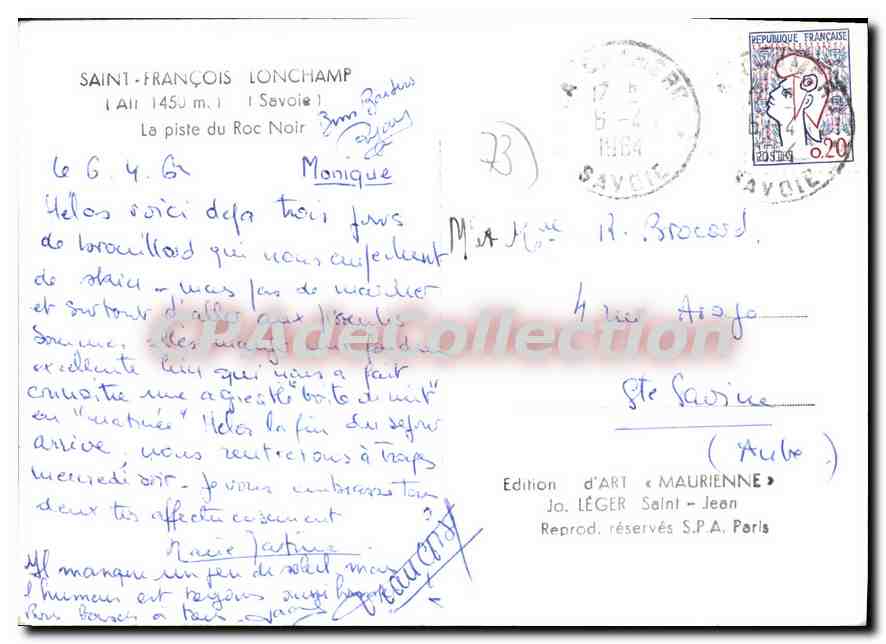 SAINT-FRANÇOIS LONCHAMP
(Alt 1450 m.) (Savoie)
La piste du Roc Noir
Bons Baisers
le 6.4.64
Monique
Hélas voici deja trois jours
de brouillard qui nous empechent
de skier - mais pas de marcher
et surtout d'aller aux
sommes allés manger
excellente qui nous a fait
connaître une agréable "boite de nuit"
en "matinée" Hélas la fin du séjour
arrive, nous rentrerons à Troyes
mercredi soir - Je vous embrasse tous
deux très affectueusement
Marie Martine
Il manque un peu de soleil mais
l'humour est toujours aussi
Bons baisers à tous.
73
1964
SAVOIE
REPUBLIQUE FRANÇAISE
POSTES
0,20
SAVOIE
Mr et Mme R. Brocard
4 rue Arago
Ste Savine
(Aube)
Edition d'ART « MAURIENNE »
Jo. LÉGER Saint-Jean
Reprod. réservés S.P.A. Paris
CPAdeCollection